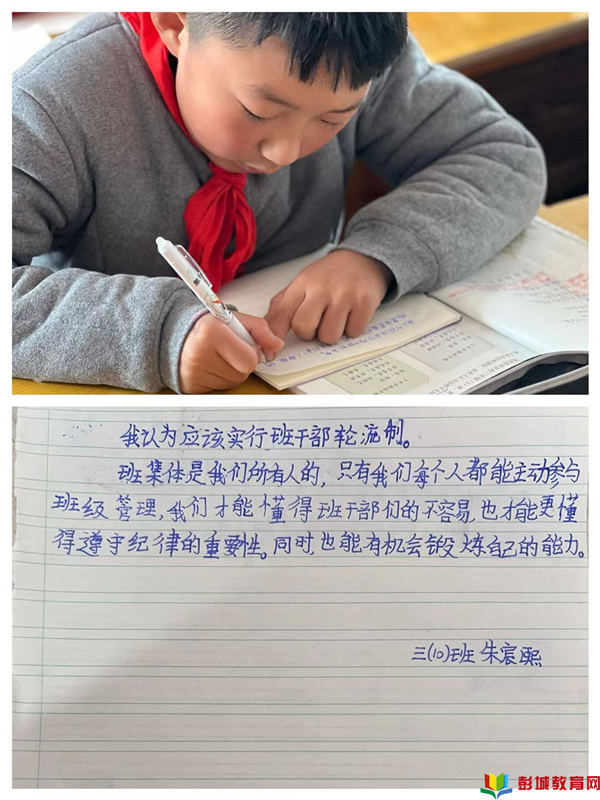 我认为应该实行班干部轮流制。
班集体是我们所有人的,只有我们每个人都能主动参与
班级管理,我们才能懂得班干部们的不容易,也才能更懂
得遵守纪律的重要性。同时,也能有机会锻炼自己的能力。
三(10)班 朱宸熙
彭城教育网